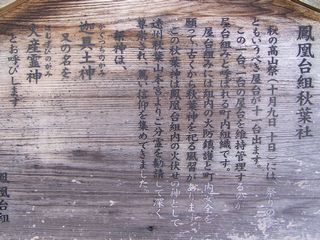 鳳凰台組秋葉社
秋の高山祭（十月九日、十日）には、祭りの華
ともいうべき屋台が十一台出ます。
この一台一台の屋台を維持管理するのが
屋台組と呼ばれる町内組織です。
屋台組毎に組内の火防鎮護と町内安全を
願って古くから秋葉神を祀る風習があります。
この秋葉神は鳳凰台組内の火伏せの神として
遠州秋葉山本宮より御分霊を勧請して深く
尊崇され、篤い信仰を集めてきました。
祭神は、
かぐつちのかみ
迦具土神 又の名を
ほむすびのかみ
火産霊神
とお呼びします
鳳凰台組